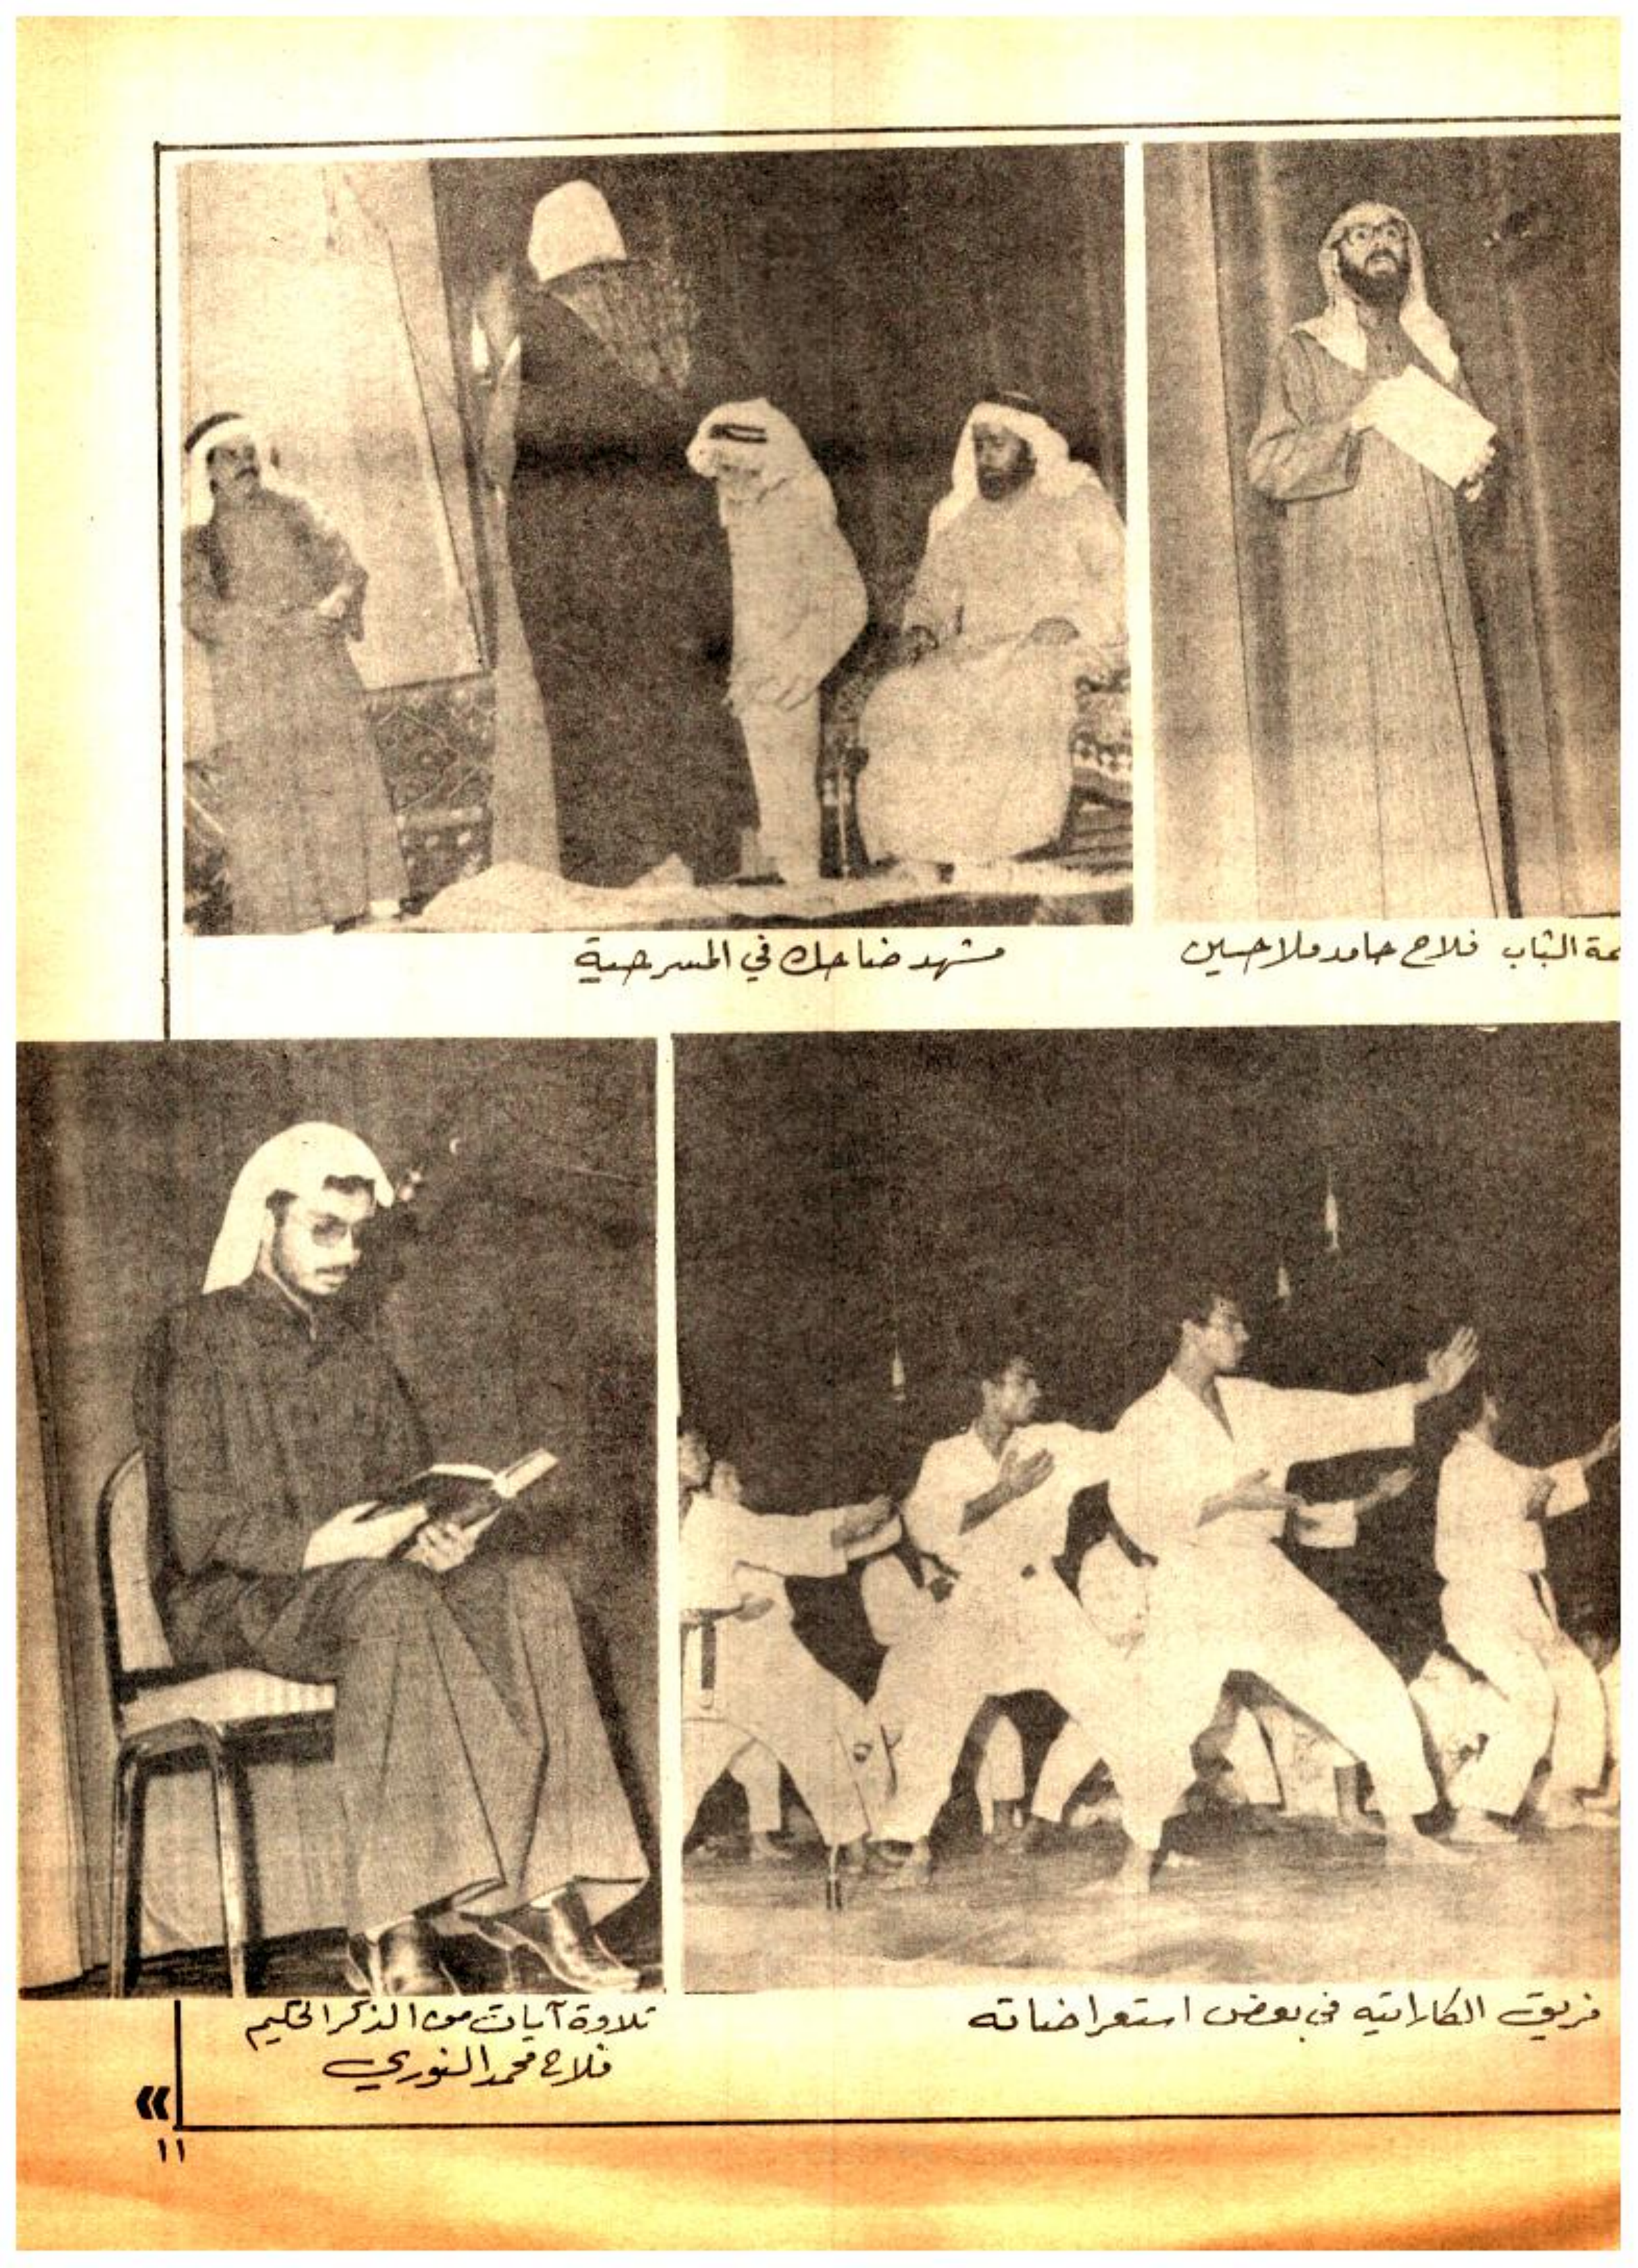 الشباب فلاح حامد ملا حسين
مشهد ضاحك في المسرحية
فريق الكاراتيه في بعض استعراضاته
تلاوة آيات من الذكر الحكيم
فلاح محمد النوري
»
١١